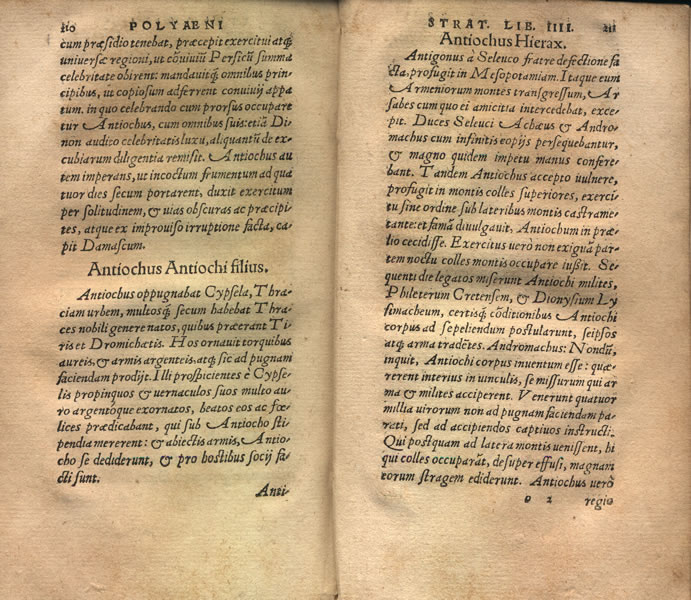 210 POLYAENI
cum præsidio tenebat, præcepit exercitui atq́;
universæ regioni, ut cōuiuiū Persicū summa
celebritate obirent: mandauitq́; omnibus prin-
cipibus, ut copiosum adferrent conuiuij appa
tum. in quo celebrando cum prorsus occupare
tur Antiochus, cum omnibus suis: etiā Di
non audito celebritatis luxu, aliquantū de ex-
cubiarum diligentia remisit. Antiochus au
tem imperans, ut incoctum frumentum ad qua
tuor dies secum portarent, duxit exercitum
per solitudinem, & uias obscuras ac præcipi-
tes, atque ex improuiso irruptione facta, ca-
pit Damascum.
Antiochus Antiochi filius.
Antiochus oppugnabat Cypsela, Thra-
ciam urbem, multosq́; secum habebat Thra-
ces nobili genere natos, quibus præerant Ti-
ris et Dromichætis. Hos ornauit torquibus
aureis, & armis argenteis. atq́; sic ad pugnam
faciendam prodijt. Illi prospicientes è Cypse-
lis propinquos & uernaculos suos multo au-
ro argentóque exornatos, beatos eos ac fœ-
lices prædicabant, qui sub Antiocho sti-
pendia mererent: & abiectis armis, Antio-
cho se dediderunt, & pro hostibus socij fa-
cti sunt.
Anti-
STRAT. LIB. IIII. 211
Antiochus Hierax.
Antigonus à Seleuco fratre defectione fa
cta, profugit in Mesopotamiam. Itaque eum
Armeniorum montes transgressum, Ar
sabes cum quo ei amicitia intercedebat, exce-
pit. Duces Seleuci Achæus & Andro-
machus cum infinitis copijs persequebantur,
& magno quidem impetu manus confere-
bant. Tandem Antiochus accepto uulnere,
profugit in montis colles superiores, exerci-
tu sine ordine sub lateribus montis castrame-
tante: et famā diuulgauit. Antiochum in præ-
lio cecidisse. Exercitus uerò non exiguā par-
tem noctu colles montis occupare iußit. Se-
quenti die legatos miserunt Antiochi milites,
Phileterum Cretensem, & Dionysium Ly
simacheum, certisq́; cōditionibus Antiochi
corpus ad sepeliendum postularunt, seipsos
atq́; arma tradētes. Andromachus: Nondū,
inquit, Antiochi corpus inuentum esse: quæ-
rerent interius in uinculis, se missurum qui ar
ma & milites acciperent. Venerunt quatuor
millia uirorum non ad pugnam faciendam pa-
rati, sed ad accipiendos captiuos instructi.
Qui postquam ad latera montis uenissent, hi
qui colles occuparāt, desuper effusi, magnam
eorum stragem ediderunt. Antiochus uerò
o 2 regio